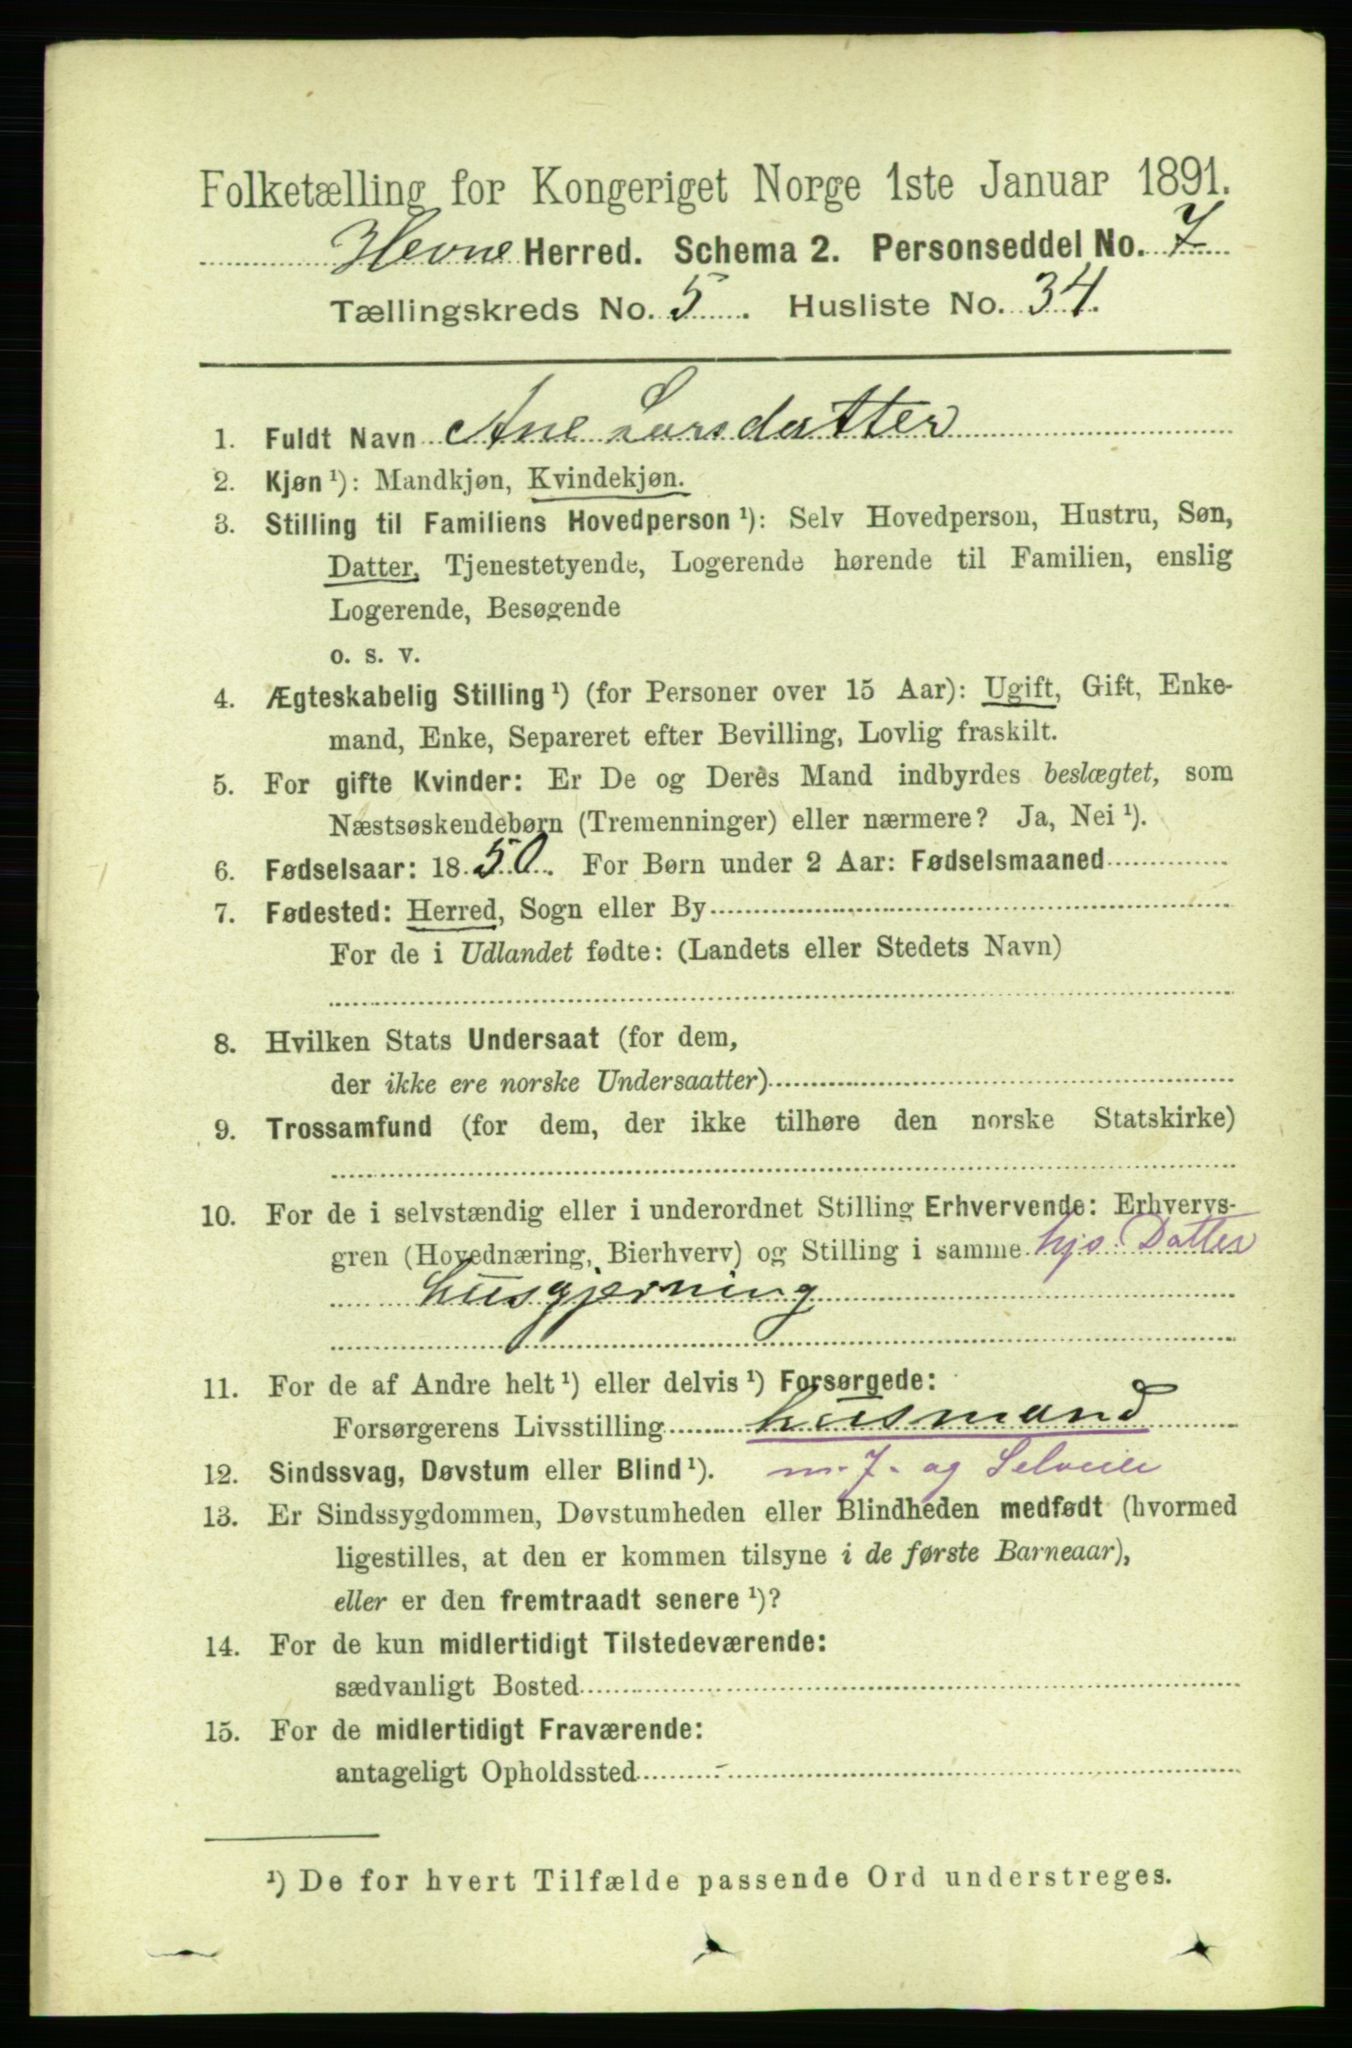 Folketælling for Kongeriget Norge 1ste Januar 1891.
Hevne Herred. Schema 2. Personseddel No. 7
Tællingskreds No. 5. Husliste No. 34.
1. Fuldt Navn Ane Larsdatter
2. Kjøn ¹): Mandkjøn, Kvindekjøn.
3. Stilling til Familiens Hovedperson ¹): Selv Hovedperson, Hustru, Søn,
Datter, Tjenestetyende, Logerende hørende til Familien, enslig
Logerende, Besøgende
o. s. v.
4. Ægteskabelig Stilling ¹) (for Personer over 15 Aar): Ugift, Gift, Enke-
mand, Enke, Separeret efter Bevilling, Lovlig fraskilt.
5. For gifte Kvinder: Er De og Deres Mand indbyrdes beslægtet, som
Næstsøskendebørn (Tremenninger) eller nærmere? Ja, Nei ¹).
6. Fødselsaar: 1850. For Børn under 2 Aar: Fødselsmaaned
7. Fødested: Herred, Sogn eller By
For de i Udlandet fødte: (Landets eller Stedets Navn)
8. Hvilken Stats Undersaat (for dem,
der ikke ere norske Undersaatter)
9. Trossamfund (for dem, der ikke tilhøre den norske Statskirke)
10. For de i selvstændig eller i underordnet Stilling Erhvervende: Erhvervs-
gren (Hovednæring, Bierhverv) og Stilling i samme hjo. Datter
husgjerning
11. For de af Andre helt ¹) eller delvis ¹) Forsørgede:
Forsørgerens Livsstilling husmand
12. Sindssvag, Døvstum eller Blind ¹). m. J. og Selveier
13. Er Sindssygdommen, Døvstumheden eller Blindheden medfødt (hvormed
ligestilles, at den er kommen tilsyne i de første Barneaar),
eller er den fremtraadt senere ¹)?
14. For de kun midlertidigt Tilstedeværende:
sædvanligt Bosted
15. For de midlertidigt Fraværende:
antageligt Opholdssted -
¹) De for hvert Tilfælde passende Ord understreges.